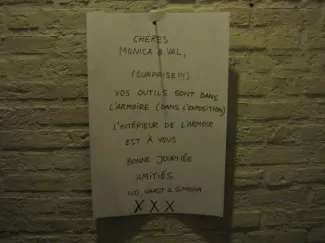 CHÈRES
MONICA & VAL,
(SURPRISE!!!)
VOS OUTILS SONT DANS
L'ARMOIRE (DANS L'EXPOSITION)
L'INTÉRIEUR DE L'ARMOIR
EST À VOUS
BONNE JOURNÉE
AMITIÉS
& SIMONA
XXX